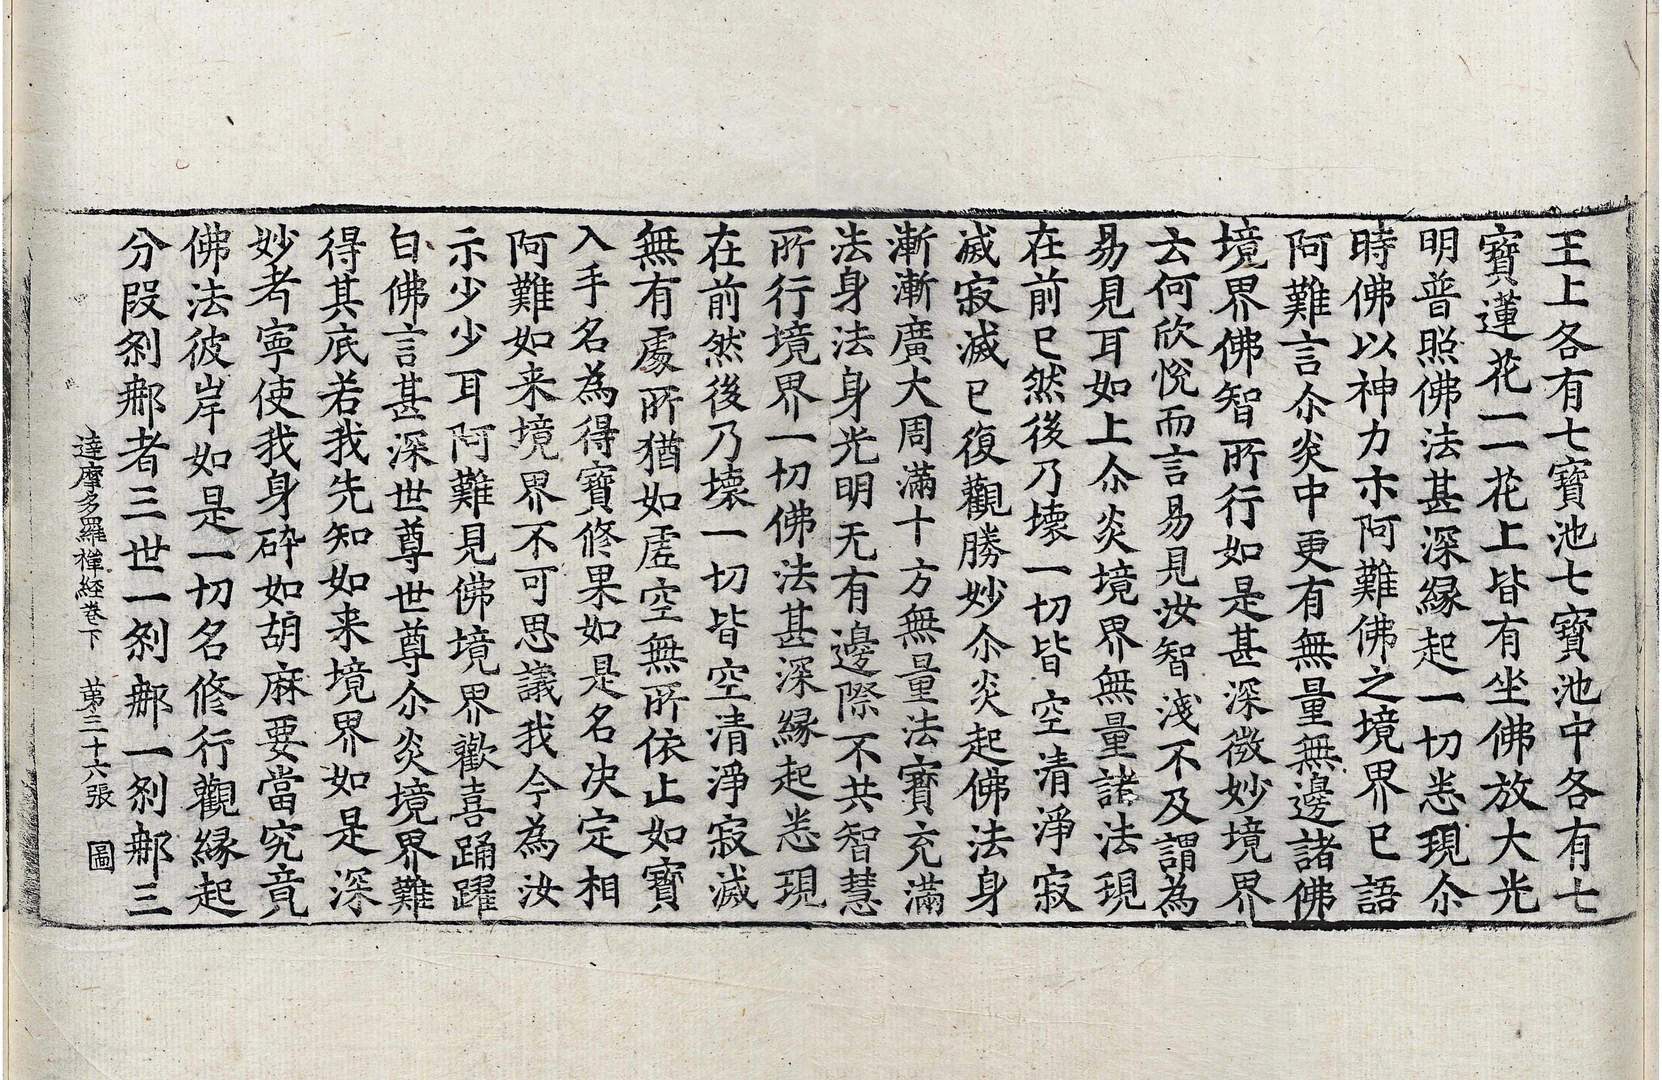 王上各有七寶池七寶池中各有七
寶蓮花一一花上皆有坐佛放大光
明普照佛法甚深緣起一切悉現尒
時佛以神力示阿難佛之境界已語
阿難言尒炎中更有無量無邊諸佛
境界佛智所行如是甚深微妙境界
云何欣悅而言易見汝智淺不及謂為
易見耳如上尒炎境界無量諸法現
在前已然後乃壞一切皆空清淨寂
滅寂滅已復觀勝妙尒炎起佛法身
漸漸廣大周滿十方無量法寶充滿
法身法身光明无有邊際不共智慧
所行境界一切佛法甚深緣起悉現
在前然後乃壞一切皆空清淨寂滅
無有處所猶如虛空無所依止如寶
入手名為得寶修果如是名決定相
阿難如来境界不可思議我今為汝
示少少耳阿難見佛境界歡喜踊躍
白佛言甚深世尊世尊尒炎境界難
得其底若我先知如来境界如是深
妙者寧使我身碎如胡麻要當究竟
佛法彼岸如是一切名修行觀緣起
分段剎郍者三世一剎郍一剎郍三
達摩多羅禪経卷下 苐三十六張 圖